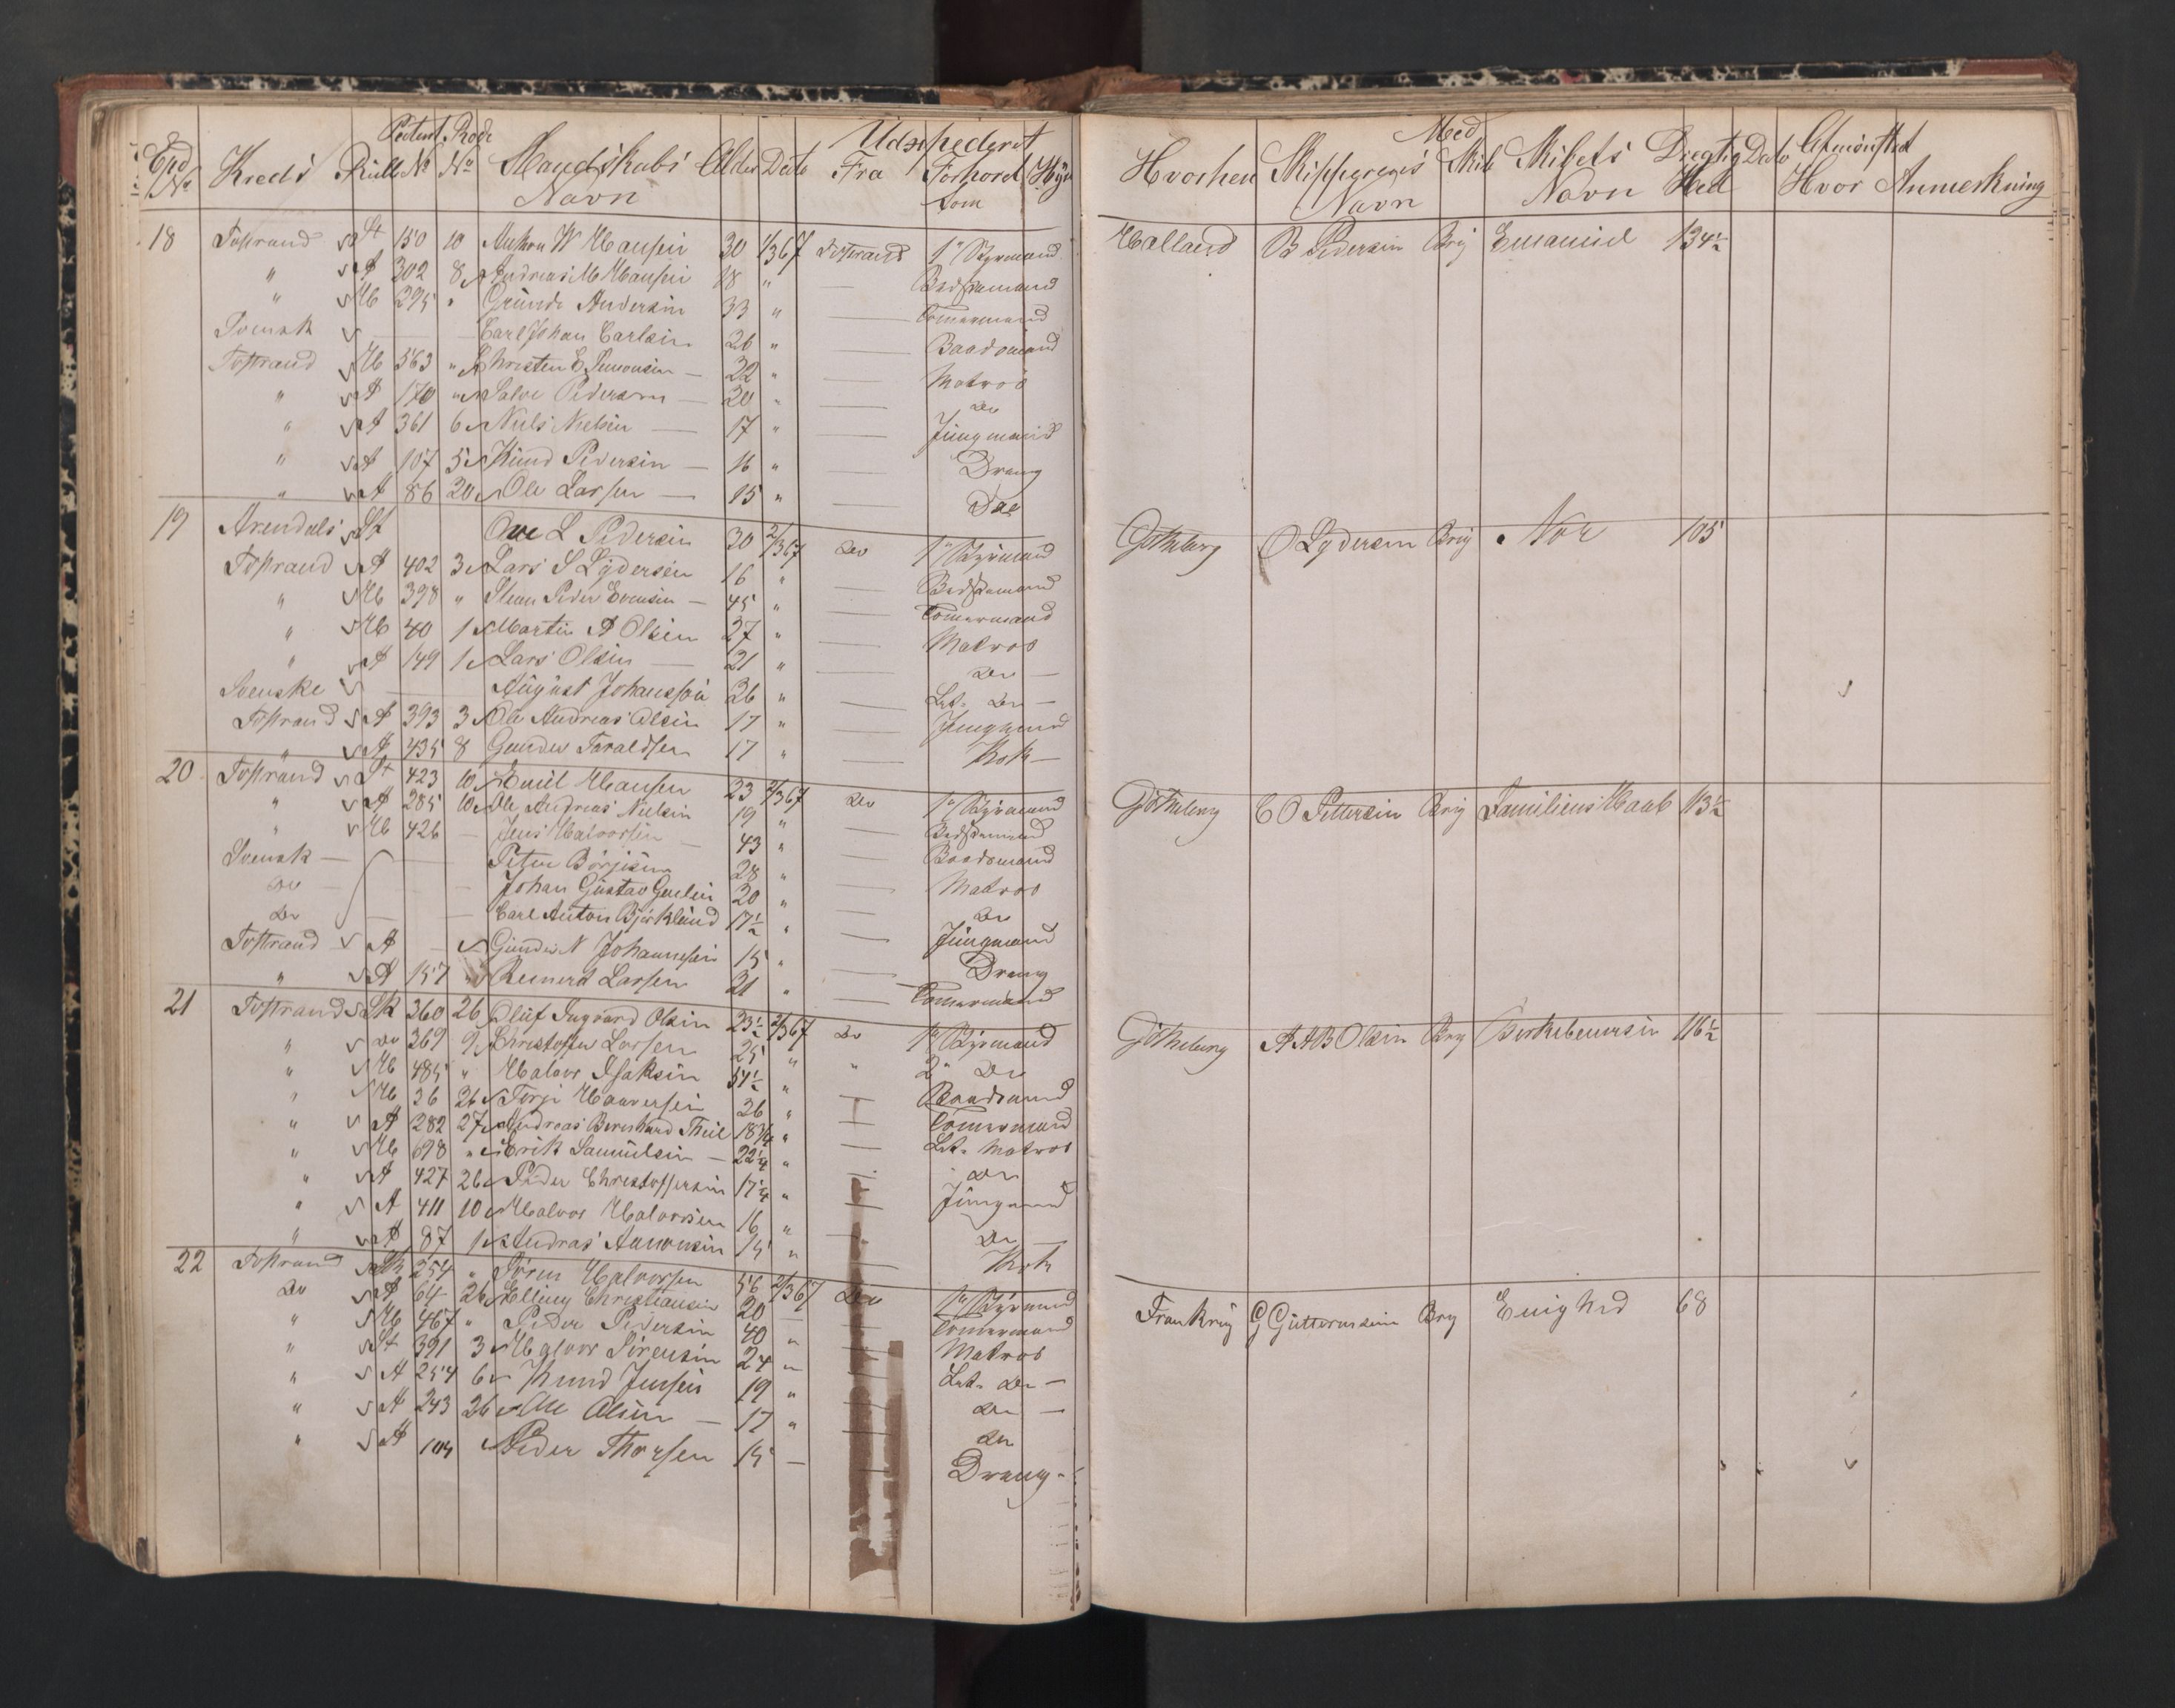 Patent Rode Udexpederet
Exp No Kreds Rulle No No Mandskabs Navn Alder Dato Fra Forhoret som Hyre
18 Tostrand St 150 10 W Hansen 30 1/3 67 Tostrand 1' Styrmand
" A 302 8 Andreas M Hansen 18 " Bedstemand
" Hb 295 " Gunde Andersen 33 " Tømmermand
Svensk Carl Johan Carlsen 26 " Baadsmand
Tostrand Hb 563 " Christen E Simonsen 22 " Matros
" A 170 " Salve Pedersen 20 " Do
" A 361 6 Niels Nielsen 17 " Jüngmand
" A 107 5 Knud Pedersen 16 " Dreng
" A 86 20 Ole Larsen 15 "
19 Arendals St Ove L Pedersen 30 2/3 67 Do 1' Styrmand
Tostrand A 402 3 Lars S Lydersen 16 " Bedstemand
" Hb 398 " Peder Evensen 45 " Tømmermand
" Hb 40 1 Martin A Olsen 27 " Matros
" A 149 1 Lars Olsen 21 " Do
Svenske August Johansson 26 " Let. Do
Tostrand A 393 3 Ole Andreas Olsen 17 " Jungmand
" A 435 8 Gunder Taraldsen 17 " Kok
20 Tostrand St 423 10 Emil Hansen 23 2/3 67 Do 1' Styrmand
" A 285 10 Ole Andreas Nielsen 19 " Bedstemand
" Hb 426 Jens Halvorsen 43 " Baadsmand
Svensk Peter Börjesen 28 " Matros
Do Johan Gustav 20 " Do
Do Carl Anton Björklund 17½ " Jüngmand
Tostrand A Gunder N Johannesen 15 " Dreng
" A 157 " Reinert Larsen 21 " Tømmermand
21 Tostrand Sk 360 26 Oluf Ingvard Olsen 23½ 2/3 67 Do 1' Styrmand
" Do 369 9 Christoffer Larsen 25 " " 2' Do
" Hb 485 " Halvor Isaksen 54½ " Baadsmand
" Hb 36 26 Terje 26 " Tømmermand
" A 282 27 Andreas Bernhard Thiel 18¾ " Let. Matros
" Hb 698 " Erik Samuelsen 22¼ " Do
" A 427 26 Peder Christoffersen 17¼ " Jüngmand
" A 411 10 Halvor Halvorsen 16 " Do
" A 87 1 Andreas Aanonsen 15 " Kok
22 Tostrand 254 " Halvorsen 56 2/3 67 Do 1' Styrmand
Do A 64 26 Elling Christiansen 20 Tømmermand
" Hb 467 " Peder Pedersen 40 " Matros
" St 391 3 Halvor Sörensen 24 " Let. Do
" A 254 6 Knud Jensen 19 " Do
" A 243 26 Ole Olsen 17 " Do
" A 104 Peder Thorsen 15 Dreng
Med Afmønstret
Hvorhen Skipperens Navn Skib Skibets Navn Drægtighed Dato Hvor Anmerkning
Holland B Pedersen Brig Emanuel 134½
Götheborg O Lydersen Brig Nor 105
Götheborg C O Pettersen Brig Familiens Haab 113½
Götheborg A A B Olsen Brig Birkebeineren 116½
Frankrig G Guttormsen Brig Enighed 68